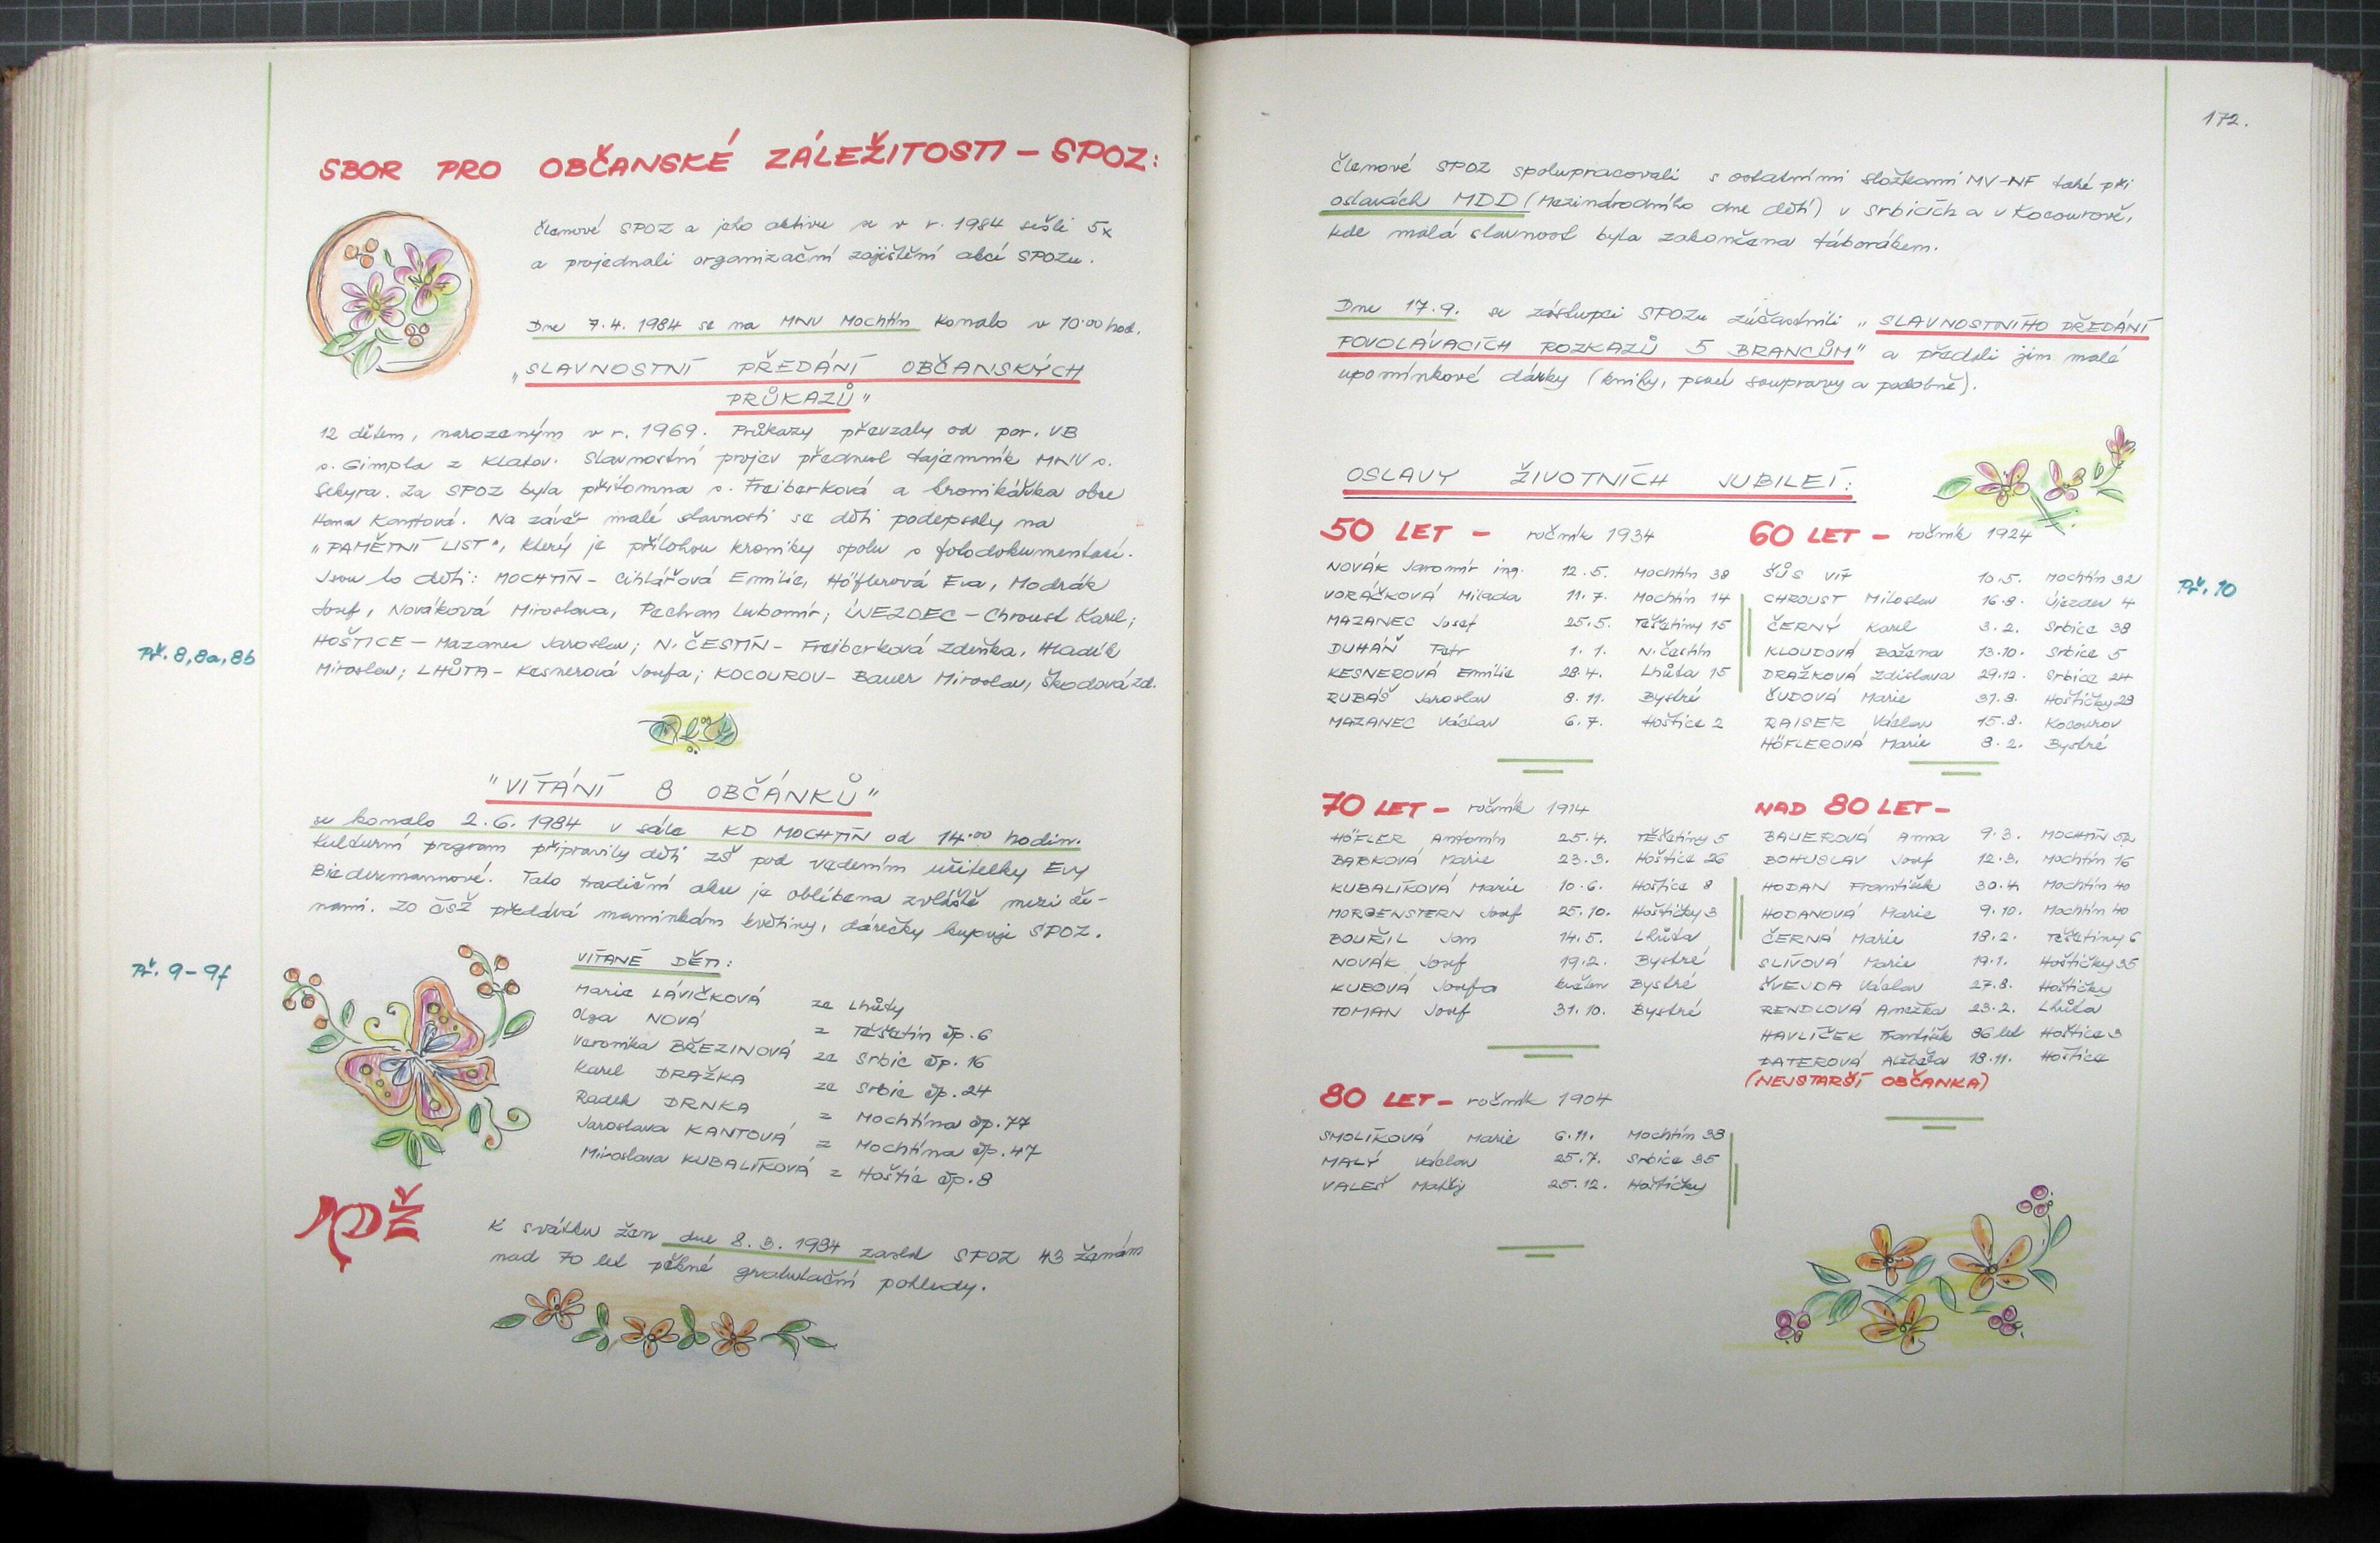 SBOR PRO OBČANSKÉ ZÁLEŽITOSTI - SPOZ:
Členové SPOZ a jeho aktivu se v r. 1984 sešli 5x
a projednali organizační zajištění akcí SPOZu.
Dne 7.4. 1984 se na MNV Mochtín konalo v 10.00 hod.
„SLAVNOSTNÍ PŘEDÁNÍ OBČANSKÝCH
PRŮKAZŮ"
12 dětem, narozeným v r. 1969. Průkazy převzaly od por. VB
s. Gimpla z Klatov. Slavnostní projev přednesl tajemník MNV s.
Sekyra. Za SPOZ byla přítomna s. Freiberková a kronikářka obce
Hana Kantová. Na závěr malé slavnosti se děti podepsaly na
„PAMĚTNÍ LIST", který je přílohou kroniky spolu s fotodokumentací.
Jsou to děti: MOCHTÍN - Cihlářová Emilie, Höflerová Eva, Modrák
Josef, Nováková Miroslava, Pechan Lubomír; ÚJEZDEC - Chroust Karel;
HOŠTICE - Mazanec Jaroslav; N. ČESTÍN - Freiberková Zdeňka, Hladík
Miroslav; LHŮTA - Kesnerová Josefa; KOCOUROV - Bauer Miroslav, Škodová Zd.
Př. 8, 8a, 8b
"VÍTÁNÍ 8 OBČÁNKŮ"
se konalo 2.6. 1984 v sále KD MOCHTÍN od 14.00 hodin.
Kulturní program připravily děti ZŠ pod vedením učitelky Evy
Biedermannové. Tato tradiční akce je oblíbena zvláště mezi že-
nami. ZO ČSŽ předává maminkám květiny, dárečky kupuje SPOZ.
Př. 9-9f
VÍTANÉ DĚTI:
Marie LÁVIČKOVÁ ze Lhůty
Olga NOVÁ z Těšetin čp. 6
Veronika BŘEZINOVÁ ze Srbic čp. 16
Karel DRAŽKA ze Srbic čp. 24
Radek DRNKA z Mochtína čp. 77
Jaroslava KANTOVÁ z Mochtína čp. 47
Miroslava KUBALÍKOVÁ z Hoštic čp. 8
MDŽ
K svátku žen dne 8.3. 1984 zaslal SPOZ 43 ženám
nad 70 let pěkné gratulační pohledy.
172.
Členové SPOZ spolupracovali s ostatními složkami MV-NF také při
oslavách MDD (Mezinárodního dne dětí) v Srbicích a v Kocourově,
kde malá slavnost byla zakončena táborákem.
Dne 17.9. se zástupci SPOZu zúčastnili „SLAVNOSTNÍHO PŘEDÁNÍ
POVOLÁVACÍCH ROZKAZŮ 5 BRANCŮM" a předali jim malé
upomínkové dárky (knihy, psací soupravy a podobně).
OSLAVY ŽIVOTNÍCH JUBILEÍ:
50 LET - ročník 1934
NOVÁK Jaromír ing. 12.5. Mochtín 38
VORÁČKOVÁ Milada 11.7. Mochtín 14
MAZANEC Josef 25.5. Těšetiny 15
DUHÁŇ Petr 1.1. N. Čestín
KESNEROVÁ Emilie 28.4. Lhůta 15
RUBÁŠ Jaroslav 8.11. Bystré
MAZANEC Václav 6.7. Hoštice 2
60 LET - ročník 1924
ŠŮS Vít 10.5. Mochtín 32
CHROUST Miloslav 16.8. Újezdec 4
ČERNÝ Karel 3.2. Srbice 38
KLOUDOVÁ Božena 13.10. Srbice 5
DRAŽKOVÁ Zdislava 29.12. Srbice 24
ČUDOVÁ Marie 31.8. Hoštičky 28
RAISER Václav 15.8. Kocourov
HÖFLEROVÁ Marie 8.2. Bystré
Př. 10
70 LET - ročník 1914
HÖFLER Antonín 25.4. Těšetiny 5
BABKOVÁ Marie 23.3. Hoštice 26
KUBALÍKOVÁ Marie 10.6. Hoštice 8
MORGENSTERN Josef 25.10. Hoštičky 3
BOUŘIL Jan 14.5. Lhůta
NOVÁK Josef 19.2. Bystré
KUBOVÁ Josefa květen Bystré
TOMAN Josef 31.10. Bystré
NAD 80 LET -
BAUEROVÁ Anna 9.3. MOCHTÍN 52
BOHUSLAV Josef 12.3. Mochtín 16
HODAN František 30.4. Mochtín 40
HODANOVÁ Marie 9.10. Mochtín 40
ČERNÁ Marie 18.2. Těšetiny 6
SLÍVOVÁ Marie 19.1. Hoštičky 35
ŠVEJDA Václav 27.8. Hoštičky
RENDLOVÁ Anežka 23.2. Lhůta
HAVLÍČEK František 86 let Hoštice 3
DATEROVÁ Alžběta 18.11. Hoštice
(NEJSTARŠÍ OBČANKA)
80 LET - ročník 1904
SMOLÍKOVÁ Marie 6.11. Mochtín 38
MALÝ Václav 25.7. Srbice 35
VALEŠ Matěj 25.12. Hoštičky